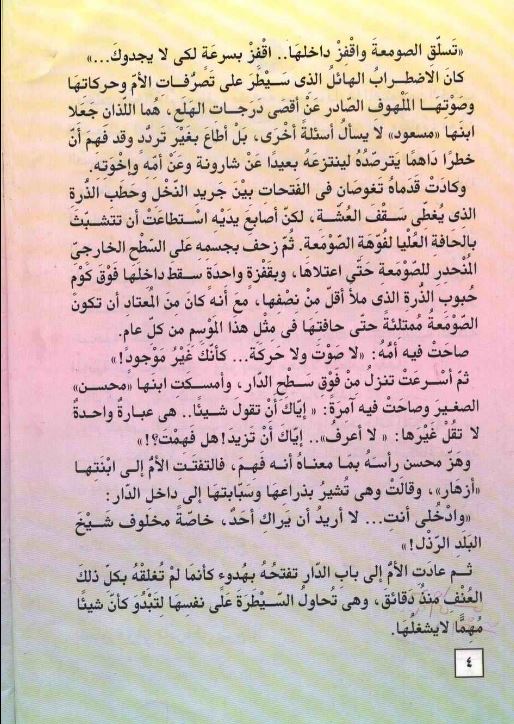 «تَسلّق الصومعةَ واقْفزْ داخلهَا.. اقْفزْ بسرعَة لكى لا يجدوكَ...»
كانَ الاضطرابُ الهائلُ الذى سَيْطَرَ على تصَرُّفات الأمّ وحركاتهَا
وصَوْتهَا المَلْهوف الصّادر عَنْ أقصَى دَرَجات الهَلَع، هُمَا اللّذان جَعَلا
ابنهَا «مسعود» لا يسألُ أسئلةً أخْرَى، بَل أطاعَ بغَيْر تَردُّد وقد فهمَ أنّ
خطرًا داهمًا يترصّدُهُ لينتزعَهُ بعيدًا عَنْ شارونة وعَنْ أمّه وإخْوَته
وكادَتْ قدمَاهُ تغوصَان فى الفتحات بين جَريد النّخْل وحَطَب الذُّرة
الذى يُغطّى سقْفَ العُشّة، لكنّ أصابعَ يديْه اسْتطاعَتْ أن تتشبّثَ
بالحَافة العُلْيا لفوّهَة الصّوْمعَة. ثُمّ زحف بجسمه عَلى السّطْح الخارجىّ
المُنْحدر للصّوْمعَة حَتّى اعتلاهَا، وبقفْزة واحدَة سقطَ داخلهَا فَوْقَ كوْم
حُبوب الذُّرة الذى ملأ أقلّ منْ نصْفهَا، مع أنهُ كانَ منَ المُعتَاد أن تكونَ
الصّوْمعةُ مُمتلئةً حتّى حافتهَا فى مثْل هذا المَوْسم منْ كلّ عام.
صاحَتْ فيه أمّهُ: «لا صَوْتَ ولا حَركَةَ... كأنّكَ غَيْرُ مَوْجودٍ!»
ثمّ أسْرعَتْ تنزلُ منْ فَوْق سَطْح الدّار، وأمسكَت ابنهَا «محسن»
الصغيرَ وصاحَتْ فيه آمرَةً: « إيّاكَ أنْ تقولَ شيئًا.. هى عبارةٌ واحدةٌ
لا تقلْ غَيْرَها: « لا أعرفُ».. إيّاكَ أنْ تزيدَ!هل فَهمْتَ؟!»
وهَزّ محسن رأسَهُ بمَا معنَاهُ أنه فهم، فالتفتَت الأمّ إلى ابْنَتهَا
«أزهَار»، وقالَتْ وهى تُشيرُ بذراعهَا وسَبّابتهَا إلى داخل الدّار:
«وادْخُلى أنت... لا أريدُ أن يَراكِ أحَدٌ، خاصّةً مخلوف شَيْخَ
البَلَد الرّذْل!»
ثم عادَت الأمّ إلى باب الدّار تفتحُهُ بهُدوء كأنمَا لمْ تُغلقْهُ بكلّ ذلكَ
العُنْف مُنذُ دقائقَ، وهى تحاولُ السّيْطَرَةَ عَلَى نفسهَا لتبْدُوَ كأنّ شيئًا
مُهمًّا لايشغلهَا.
٤